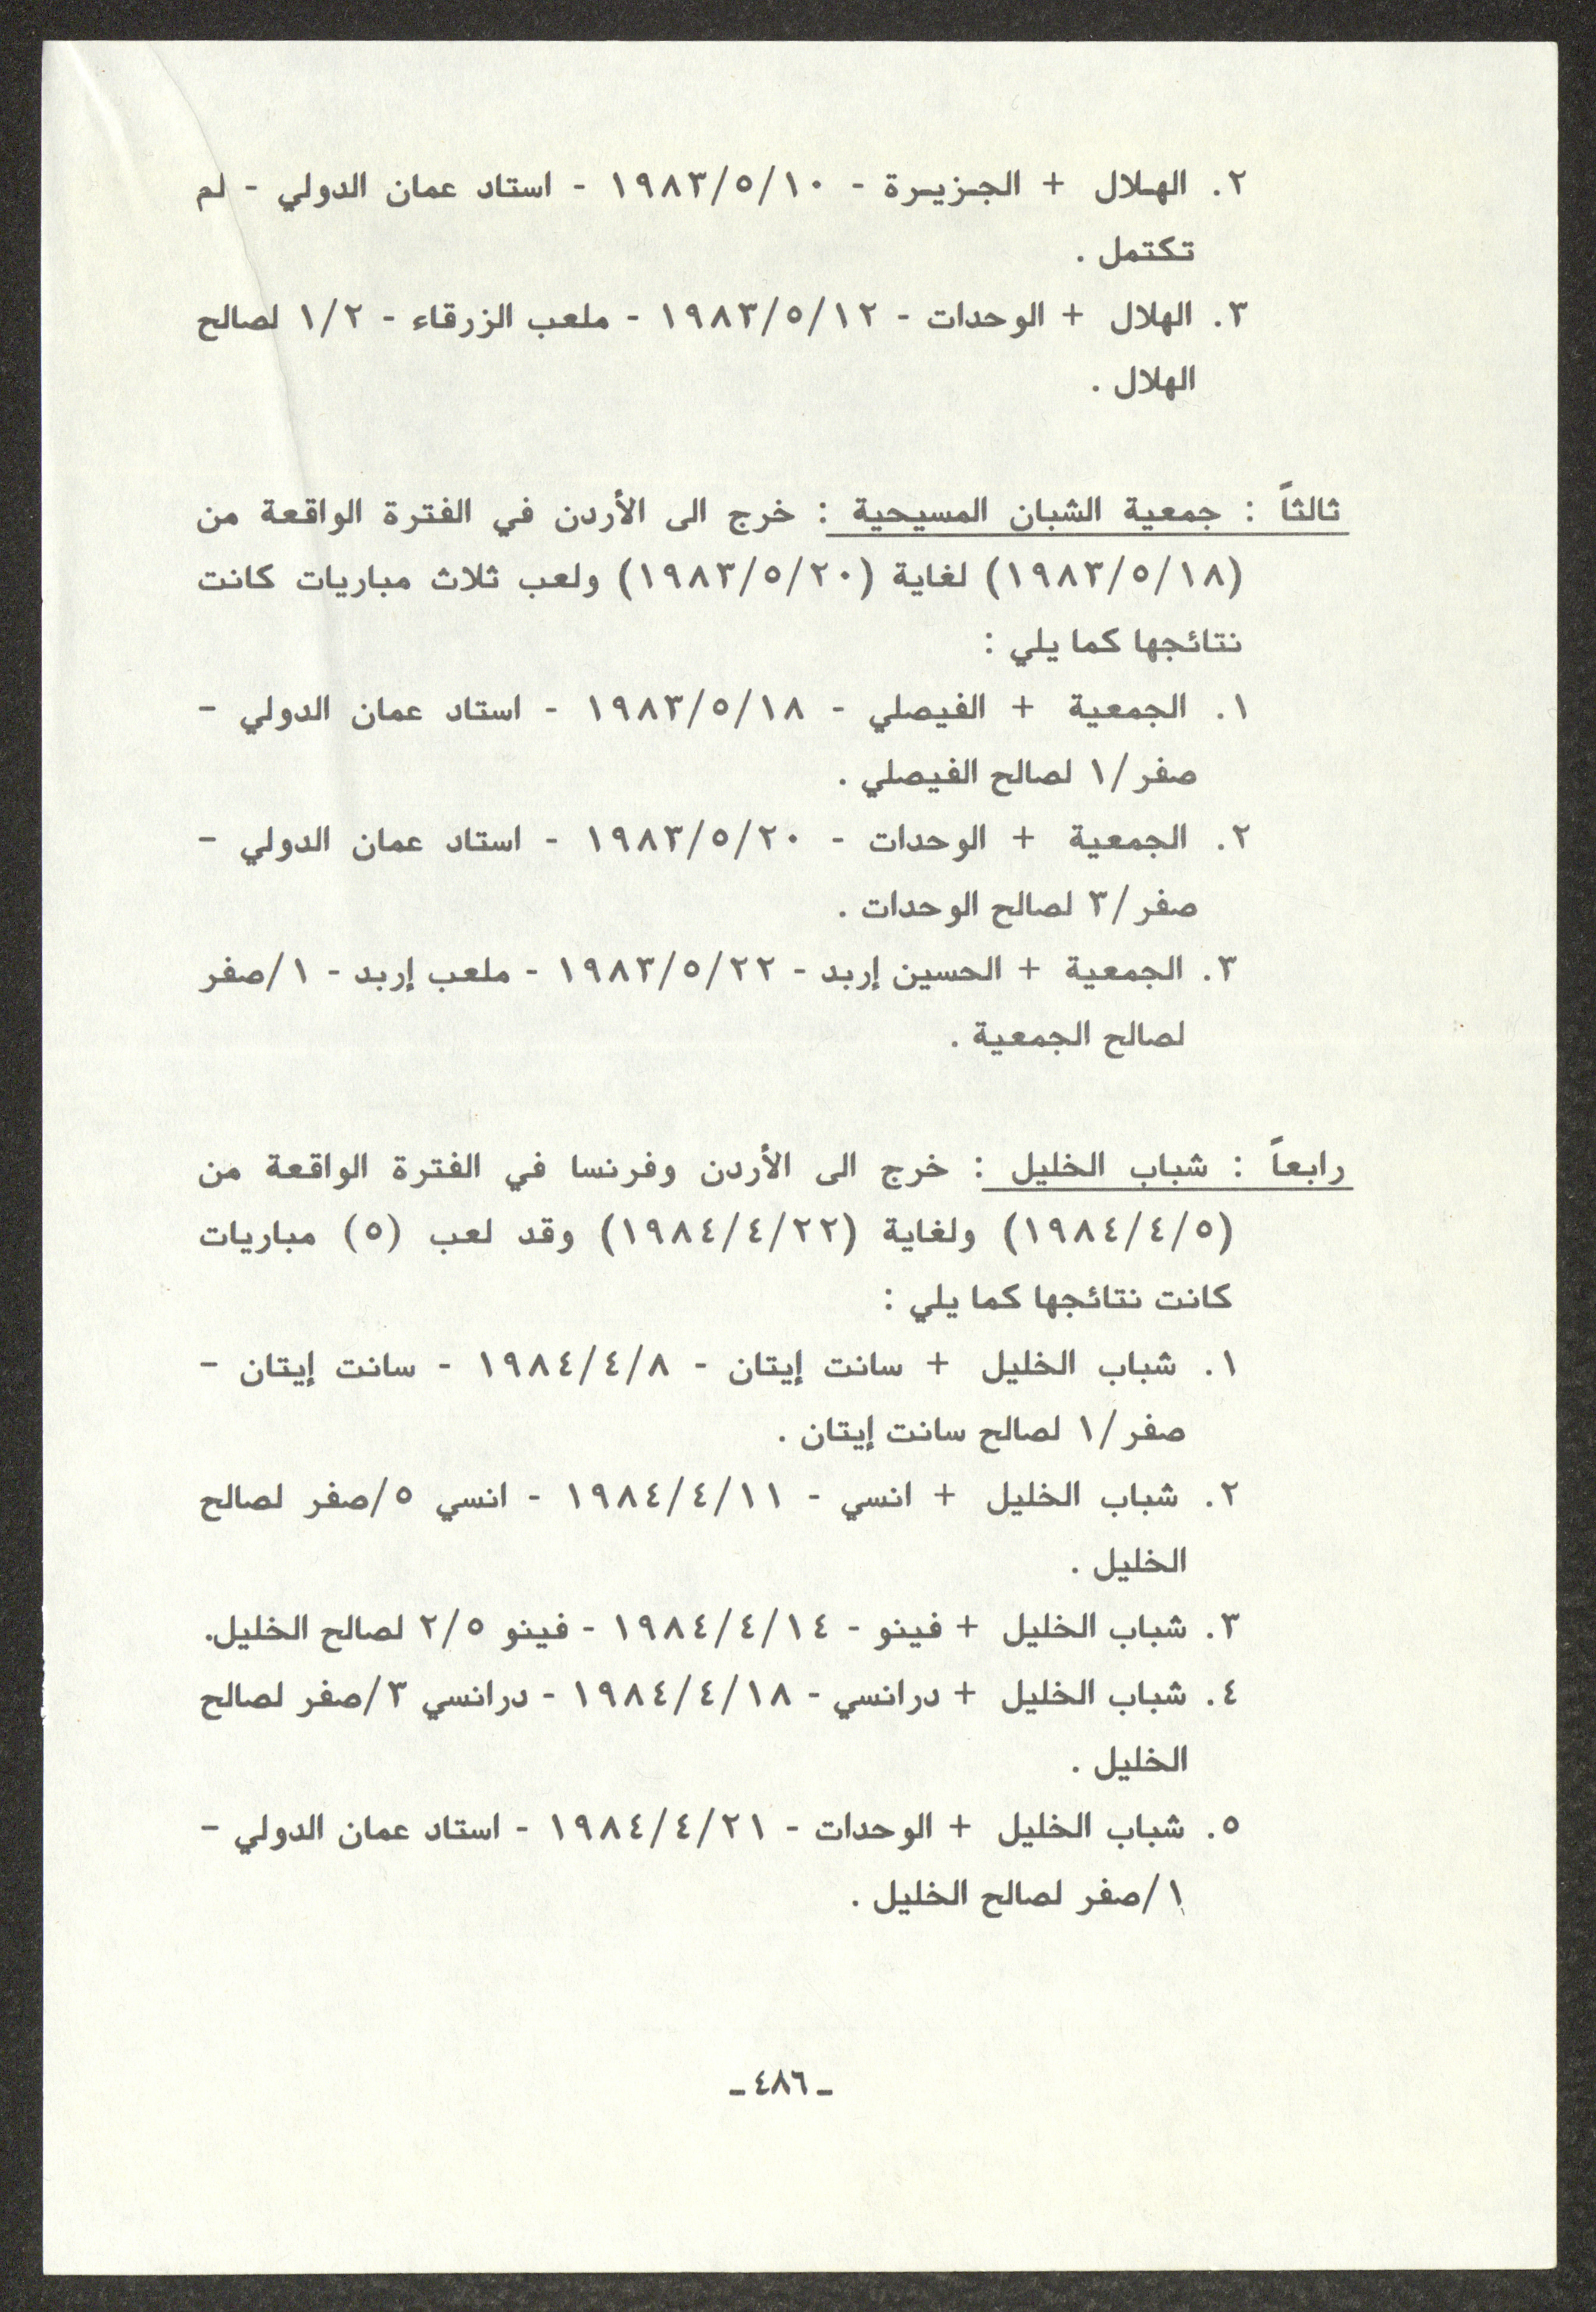 ٢. الهلال + الجزيرة - ١٩٨٣/٥/١٠ - استاد عمان الدولي - لم
تكتمل .
٣. الهلال + الوحدات - ١٩٨٣/٥/١٢ - ملعب الزرقاء - ١/٢ لصالح
الهلال .
ثالثاً : جمعية الشبان المسيحية : خرج الى الأردن في الفترة الواقعة من
(١٩٨٣/٥/١٨) لغاية (١٩٨٣/٥/٢٠) ولعب ثلاث مباريات كانت
نتائجها كما يلي :
١. الجمعية + الفيصلي - ١٩٨٣/٥/١٨ - استاد عمان الدولي -
صفر/١ لصالح الفيصلي .
٢. الجمعية + الوحدات - ١٩٨٣/٥/٢٠ - استاد عمان الدولي -
صفر/٣ لصالح الوحدات .
٣. الجمعية + الحسين إربد - ١٩٨٣/٥/٢٢ - ملعب إربد - ١/صفر
لصالح الجمعية .
رابعاً : شباب الخليل : خرج الى الأردن وفرنسا في الفترة الواقعة من
(١٩٨٤/٤/٥) ولغاية (١٩٨٤/٤/٢٢) وقد لعب (٥) مباريات
كانت نتائجها كما يلي :
١. شباب الخليل + سانت إيتان - ١٩٨٤/٤/٨ - سانت إيتان -
صفر/١ لصالح سانت إيتان .
٢. شباب الخليل + انسي - ١٩٨٤/٤/١١ - انسي ٥/صفر لصالح
الخليل .
٣. شباب الخليل + فينو - ١٩٨٤/٤/١٤ - فينو ٢/٥ لصالح الخليل.
٤. شباب الخليل + درانسي - ١٩٨٤/٤/١٨ - درانسي ٣/صفر لصالح
الخليل .
٥. شباب الخليل + الوحدات - ١٩٨٤/٤/٢١ - استاد عمان الدولي -
١/صفر لصالح الخليل .
ـ ٤٨٦ ـ